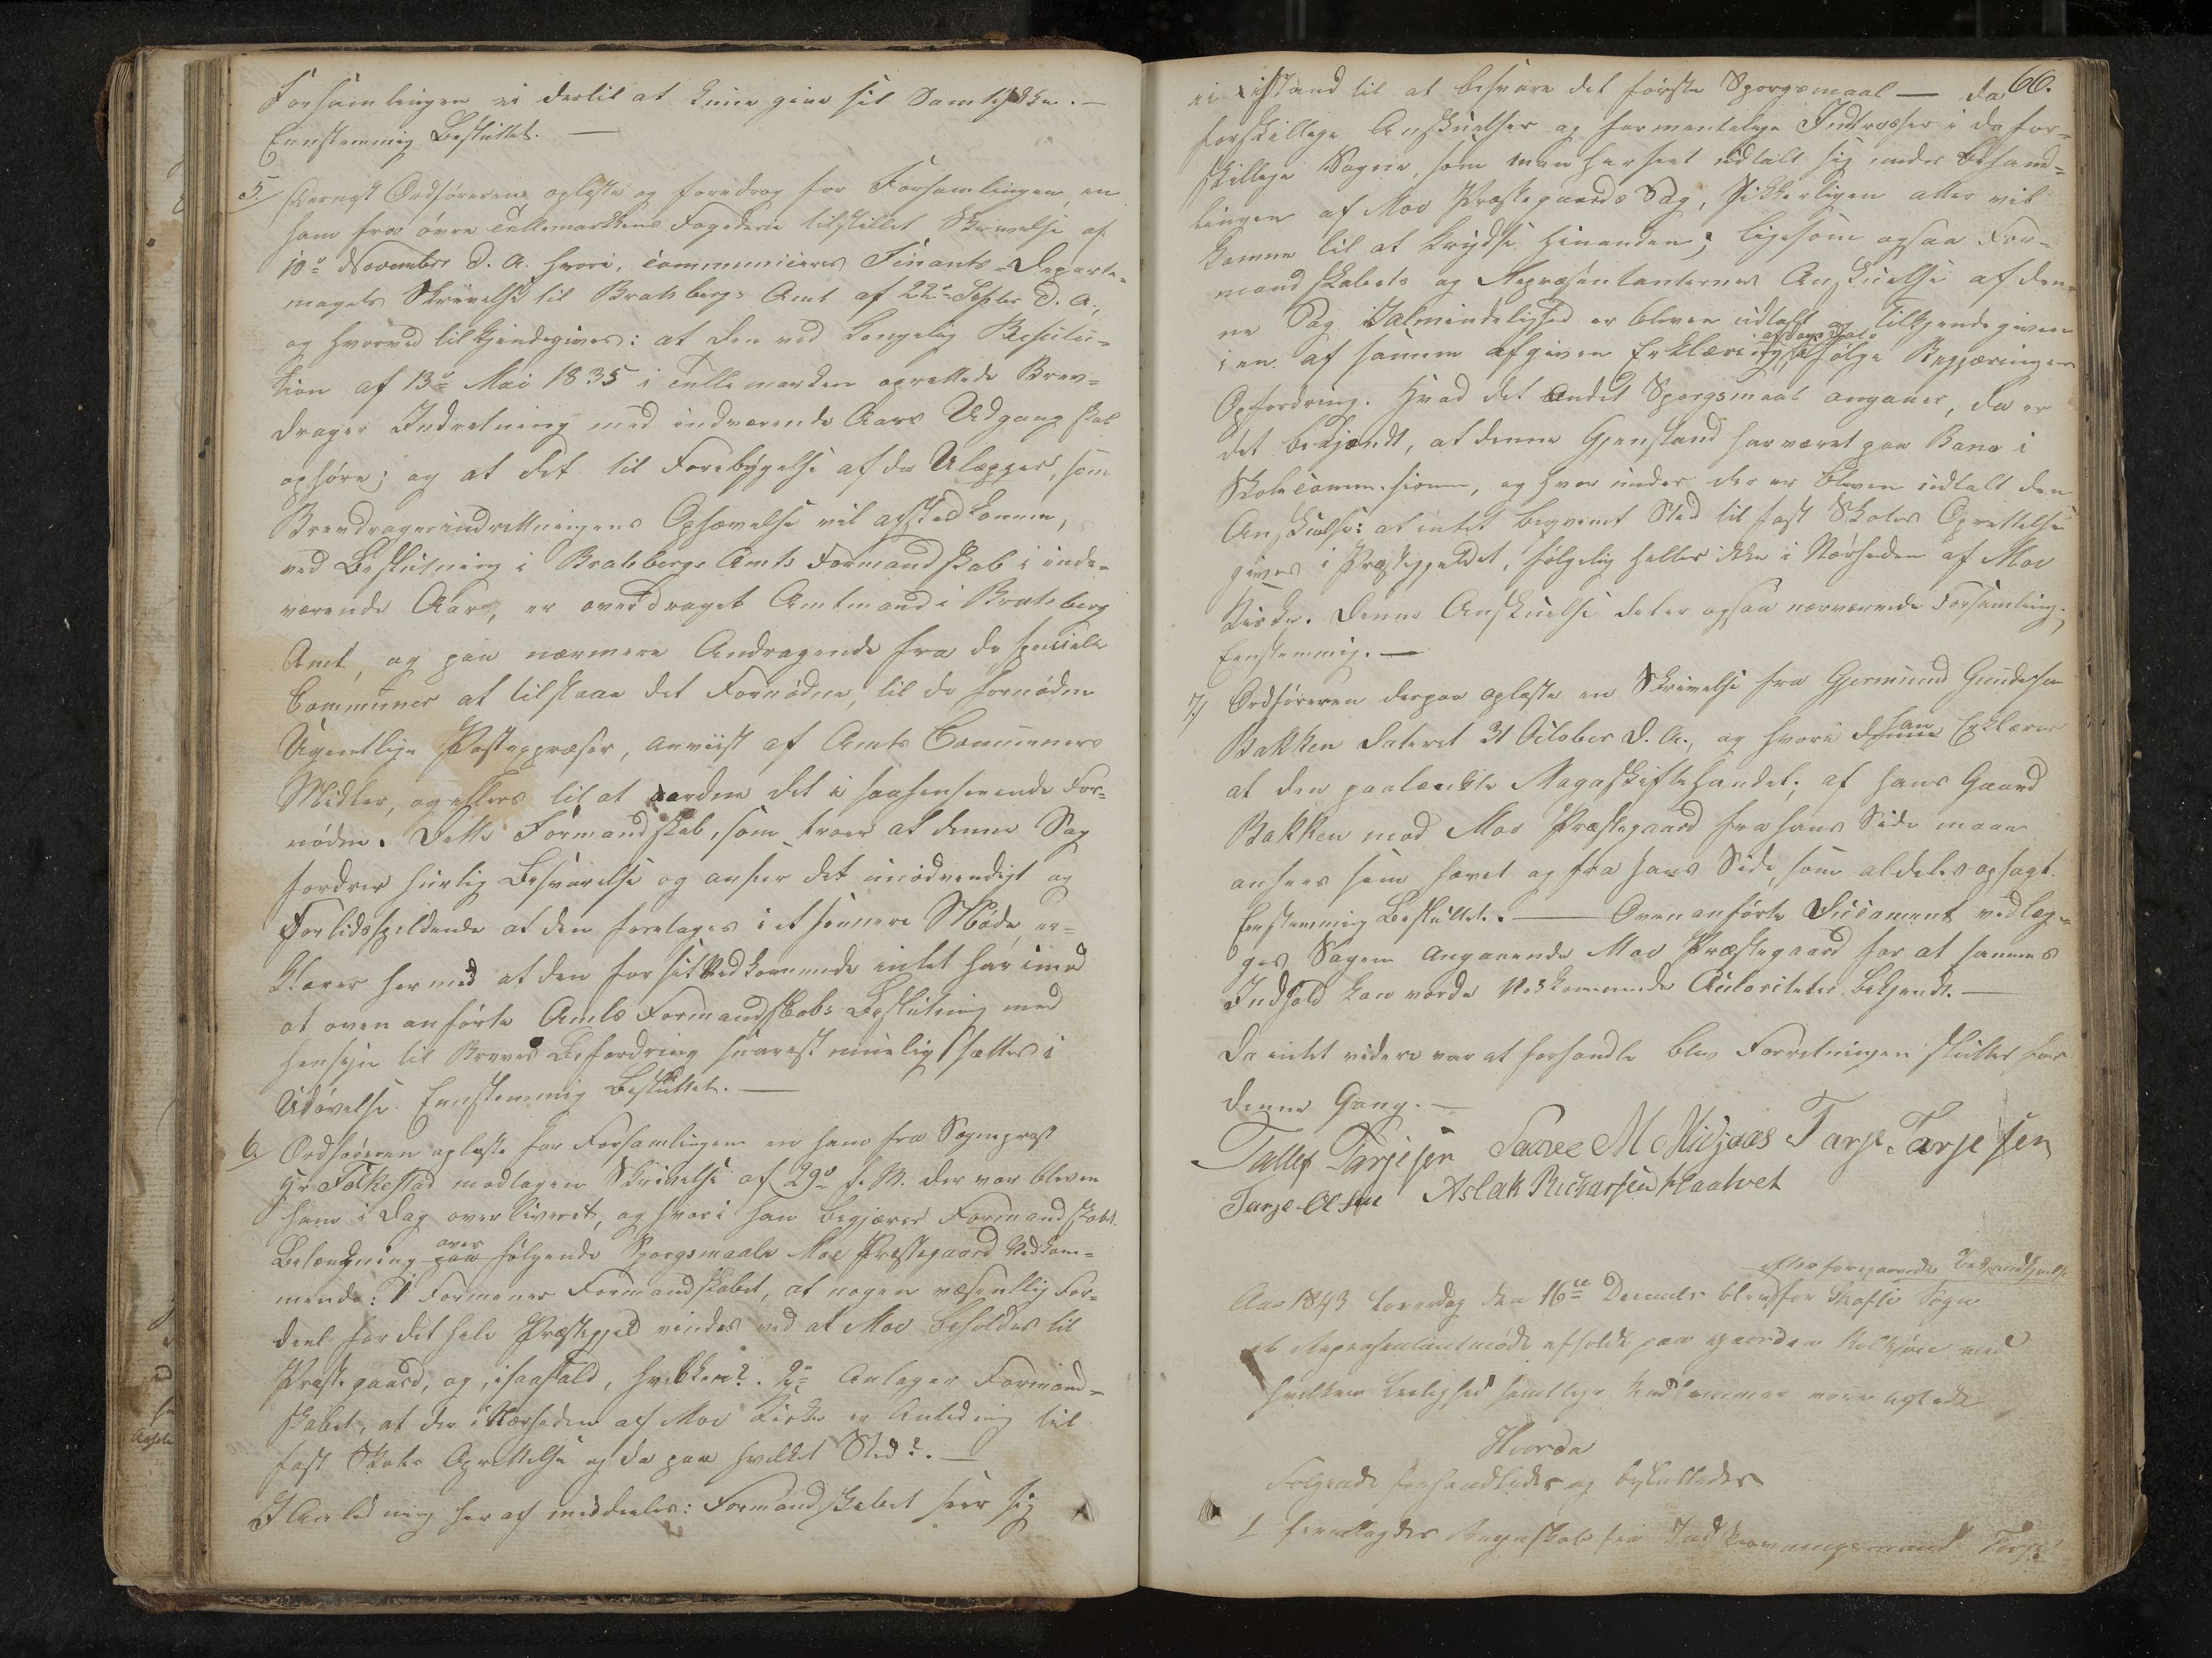 Forsamlingen ei dertil at kunne give sit Samtykke. —
Eenstemmig Besluttet. —
5. / Dernest Ordføreren oplæste og foredrog for Forsamlingen, en
ham fra øvre Tellemarkens Fogderie tilstillet Skrivelse af
10de November d. A. hvori communiceres Finants-Departe-
mentets Skrivelse til Bratsbergs Amt af 22de Septbr d. A.,
og hvorved tilkjendegives: at den ved Kongelig Resolu-
tion af 13de Mai 1835 i Tellemarken oprettede Brev-
drager Indretning med indværende Aars Udgang skal
ophøre; og at det til Forebygelse af de Ulæmper, som
Brevdragerindretningens Ophævelse vil afstedkomme,
ved Beslutning i Bratsbergs Amts Formandskab i inde-
værende Aar, er overdraget Amtmand i Bratsberg
Amt, og paa nærmere Andragende fra de specielle
Communer at tilstaae det Fornødne, til de fornødne
Ugentlige Postexpresser, anviist af Amts Communens
Midler, og ellers til at ordne det i saahenseende For-
nødne. Dette Formandskab, som troer at denne Sag
fordrer hurtig Besvarelse og anseer det unødvendigt og
Fortidsspildende at den foretages i et sennere Møde, er-
klærer hermed at den for sit Vedkommende intet har imod
at ovenanførte Amts Formandskabs Beslutning med
Hensyn til Breves Befordring snarest muelig sættes i
Udøvelse. Eenstemmig Besluttet. —
6. / Ordføreren oplæste for Forsamlingen en ham fra Sogneprest
Hr Folkestad modtagen Skrivelse af 29de f. M. der var bleven
ham i Dag overliveret, og hvori han begjærer Formandskabets
Betænkning paa over følgende Spørgsmaale Moe Præstegaard Vedkom-
mende: 1 Formener Formandskabet, at nogen væsentlig For-
deel for det hele Præstegjeld vindes ved at Moe beholdes til
Præstegaard, og, i saafald, hvilken?. 2de Antager Formand-
skabet, at der i Nærheden af Moe Kirke er Anledning til
fast Skoles Oprettelse og da paa hvilket Sted?. —
I Anledning heraf meddeeles: Formandskabet seer sig
66.
ei istand til at besvare det første Spørgsmaal — da
forskjellige Anskuelser og formentelige Intresser i de for-
skjellige Sogne, som man har seet udtalt sig under Behand-
lingen af Moe Præstegaards Sag, sikkerligen atter vil
komme til at krydse hinanden; ligesom ogsaa For-
mandskabets og Repræsentanternes Anskuelse af den-
ne Sag i Almindelighed er bleven udtalt og tilkjendegiven
i en af samme afgiven Erklæring, ifølge Regjæringens
Opfordring. Hvad det andet Spørgsmaal angaaer, da er
det bekjendt, at denne Gjenstand har været paa Bane i
Skolecommisionen, og hvorunder der er bleven udtalt den
Anskuelse: at intet beqvemt Sted til fast Skoles Oprettelse
gives i Præstegjeldet, følgelig heller ikke i Nærheden af Moe
Kirke. Denne Anskuelse deler ogsaa nærværende Forsamling.
Eenstemmig. —
7. / Ordføreren derpaa oplæste en Skrivelse fra Gjermund Gundersen
Bakken dateret 31 October d. A., og hvori denne han Erklærer
at den paatænkte Mageskiftehandel, af hans Gaard
Bakken mod Moe Præstegaard fra hans Side maae
ansees som hævet og fra hans Side, som aldeles opsagt.
Eenstemmig Besluttet. — Ovenanførte Document vedlæg-
ges Sagen angaaende Moe Præstegaard for at sammes
Indhold kan vorde Vedkommende Autoriteter bekjendt. —
Da intet videre var at forhandle blev Forretningen sluttet for
denne Gang. —
Tallef Tarjesen Saave M Midjaas Tarje Tarjesen
Tarje Olsen Aslak Richarsen Haatvet
efter foregaaende Bekjendtgjørelse
Aar 1843 Løverdag den 16de Decembr blev for Skafse Sogn
et Repræsentantmøde afholdt paa gaarden Kolkjøn ved
hvilken Leilighed samtlige Medlemmer vare
Hvorda
Følgende forhandledes og besluttedes
1 fremlagdes Regnskab fra Indkrævningsmand Tarje